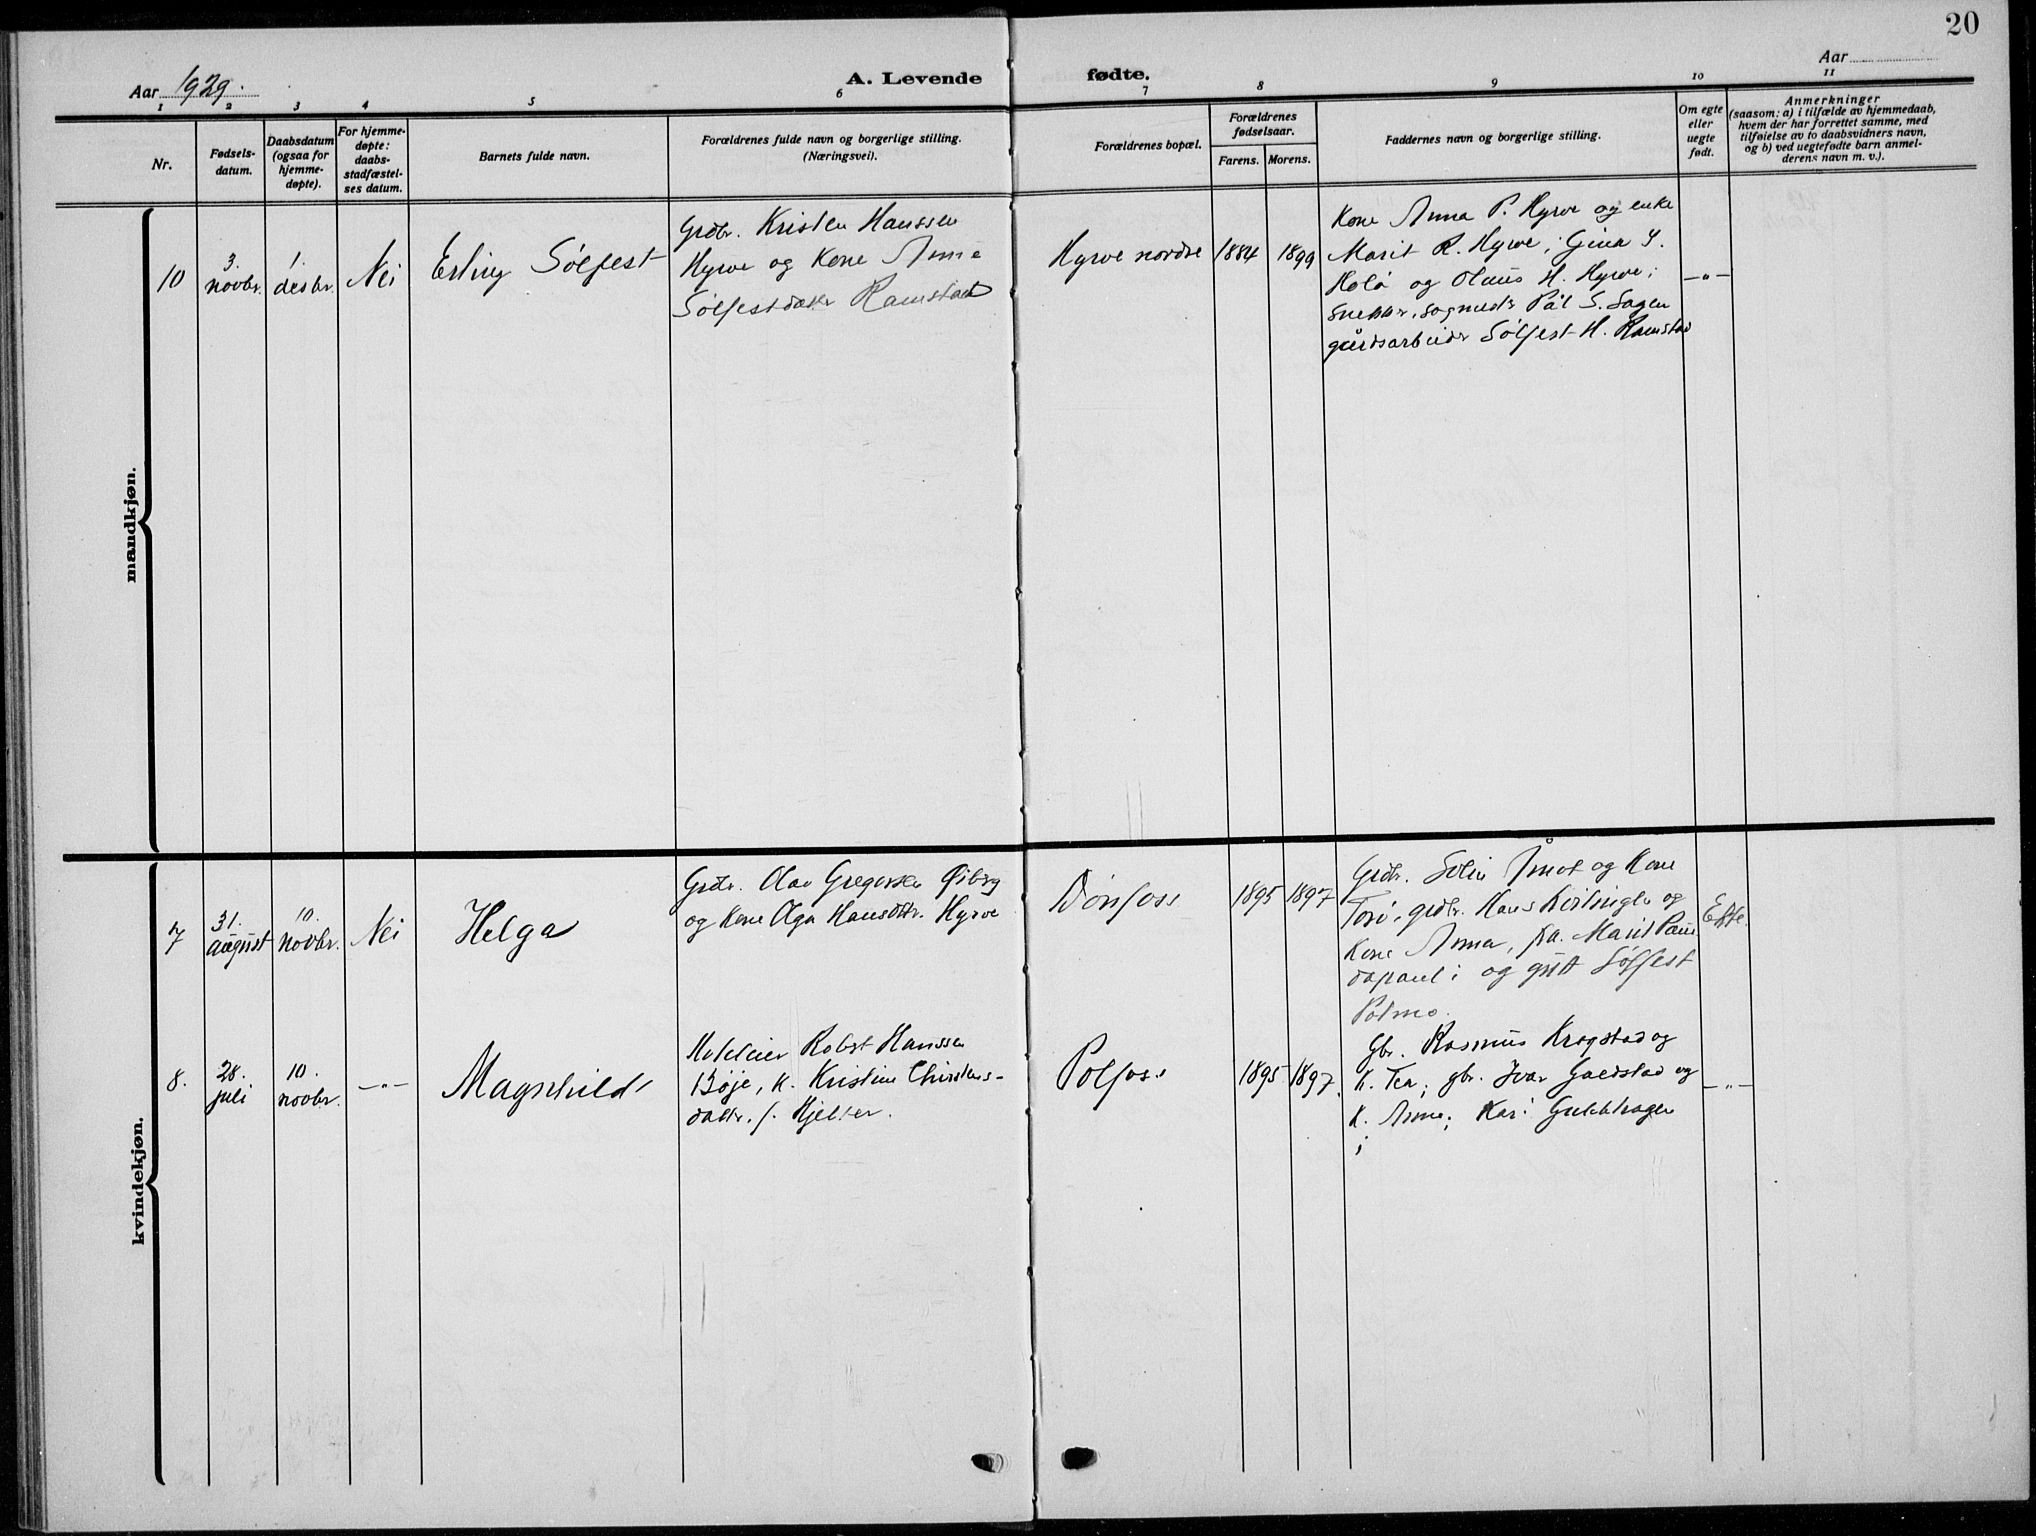 20
Aar 1929.
A. Levende fødte.
Aar
1 2 3 4 5 6 7 8 9 10 11
Nr.
Fødsels-
datum.
Daabsdatum
(ogsaa for
hjemme-
døpte).
For hjemme-
døpte:
daabs-
stadfæstel-
ses datum.
Barnets fulde navn.
Forældrenes fulde navn og borgerlige stilling.
(Næringsvei).
Forældrenes bopæl.
Forældrenes
fødselsaar.
Farens. Morens.
Faddernes navn og borgerlige stilling.
Om egte
eller
uegte
født.
Anmerkninger
(saasom: a) i tilfælde av hjemmedaab,
hvem der har forrettet samme, med
tilføielse av to daabsvidners navn,
og b) ved uegtefødte barn anmel-
derens navn m. v.).
mandkjøn.
10
3.
novbr.
1.
desbr.
Nei
Erling Sølfest
Grdbr. Kristen Hanssen
Hyrve og Kone Anne
Sølfestdatter Ramstad
Hyrve nordre
1884
1899
Kone Anna P. Hyrve og enke
Marit R. Hyrve; Gina S.
Holø og Olaus H. Hyrve;
Snekker, Pål S. Sagen
gårdsarbeider Sølfest H. Ramstad
—"—
kvindekjøn.
7
31.
august
10.
novbr.
Nei
Helga
Grdbr. Olav Gregersen Øiberg
og Kone Olga Hansdtr. Hyrve
Dønfoss
1895
1897
Grdbr. Åmot og Kone
Toro, grdbr. Hans og
Kone Anna, Marit
og gutt Sølfest
Polmo.
Egte.
8.
28.
juli
10.
novbr.
—"—
Magnhild
Robert Hanssen
Bøje, k. Kristine Christens-
datter. f. Hjelter.
Polfoss
1895
1897.
Gbr. Rasmus Krogstad og
K. Tea; gbr. Ivar og
K. Anne; Kari
;
—"—